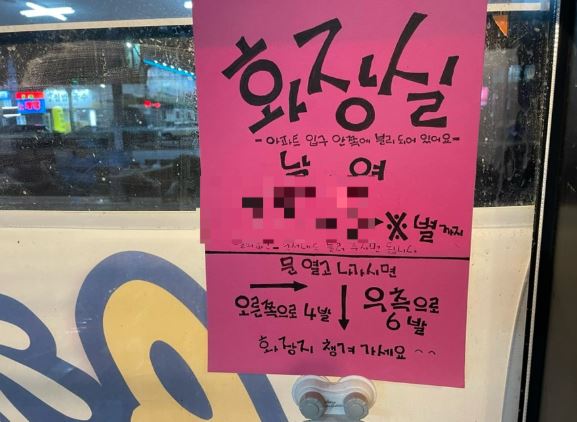 화장실
- 아파트 입구 안쪽에 분리 되어 있어요 -
남 여
※ 별 까지
순서대로 눌러 주시면 됩니다.
문 열고 나가시면
오른쪽으로 4발
우측으로
6발
화장지 챙겨 가세요 ^^